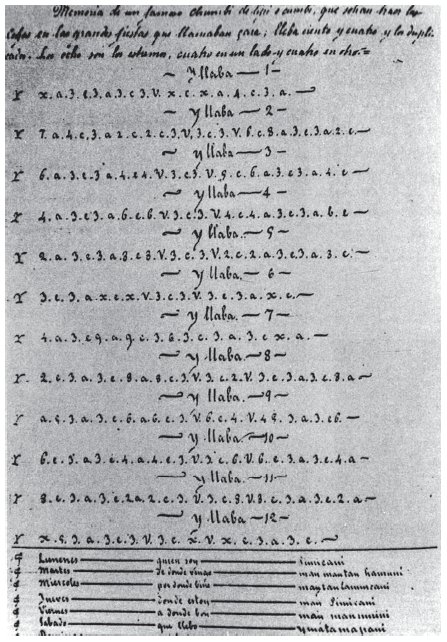 Memoria de un famoso chumbi de lipi o cumbi, que solian traer las
collas en las grandes fiestas que llamaban çara, lleba ciento y cuatro y la dupli
cacion. Los ocho son los estremos, cuatro en un lado y cuatro en otro.=
~ Yllaba — 1 —
Y x. a. 3. c. 3. a. 3. c. 3. V. x. c. x. a. 4. c. 3. a. —
~ Yllaba — 2 —
Y 7. a. 4. c. 3. a. 2. c. 2. c. 3. V. 3. c. 3. V. 6. c. 8. a. 3. c. 3. a. 2. c. —
~ Yllaba — 3 —
Y 6. a. 3. c. 3. a. 4. c. 4. V. 3. c. 3. V. 5. c. 6. a. 3. c. 3. a. 4. c —
~ Yllaba — 4 —
Y 4. a. 3. c. 3. a. 6. c. 6. V. 3. c. 3. V. 4. c. 4. a. 3. c. 3. a. 6. c —
~ Yllaba. — 5 —
Y 2. a. 3. c. 3. a. 8. c. 8. V. 3. c. 3. V. 2. c. 2. a. 3. c. 3. a. 8. c. —
~ Yllaba. — 6 —
Y 3. c. 3. a. x. c. x. V. 3. c. 3. V. 3. c. 3. a. x. c. —
~ Yllaba. — 7 —
Y 4. a. 3. c. 9. a. 9. c. 3. 6. 3. c. 3. a. 3. c. x. a. —
~ Yllaba. — 8 —
Y 2. c. 3. a. 3. c. 8. a. 8. c. 3. V. 3. c. 2. V. 3. c. 3. a. 3. c. 8. a —
~ Yllaba. — 9 —
Y a. 5. 3. a. 3. c. 6. a. 6. c. 3. V. 6. c. 4. V. 4. 5. 3. a. 3. c. 6. —
~ Yllaba — 10 —
Y 6. c. 5. a. 3. c. 4. a. 4. c. 3. V. 3. c. 6. V. 6. c. 3. a. 3. c. 4. a —
~ Yllaba. — 11 —
Y 8. c. 3. a. 3. c. 2. a. 2. c. 3. V. 3. c. 8. V. 8. c. 3. a. 3. c. 2. a —
~ Yllaba — 12 —
Y x. 5. 3. a. 3. c. 3. V. 3. c. x. V. x. c. 3. a. 3. c. —
Lunenes — quien soy — Pimicani
Martes — de donde vengo — man mantan hamuni
Miercoles — por donde vine — maytan
Jueves — donde estoy — man Pimicani
Viernes — a donde boy — man manmimi
Sabado — que llebo — ymata